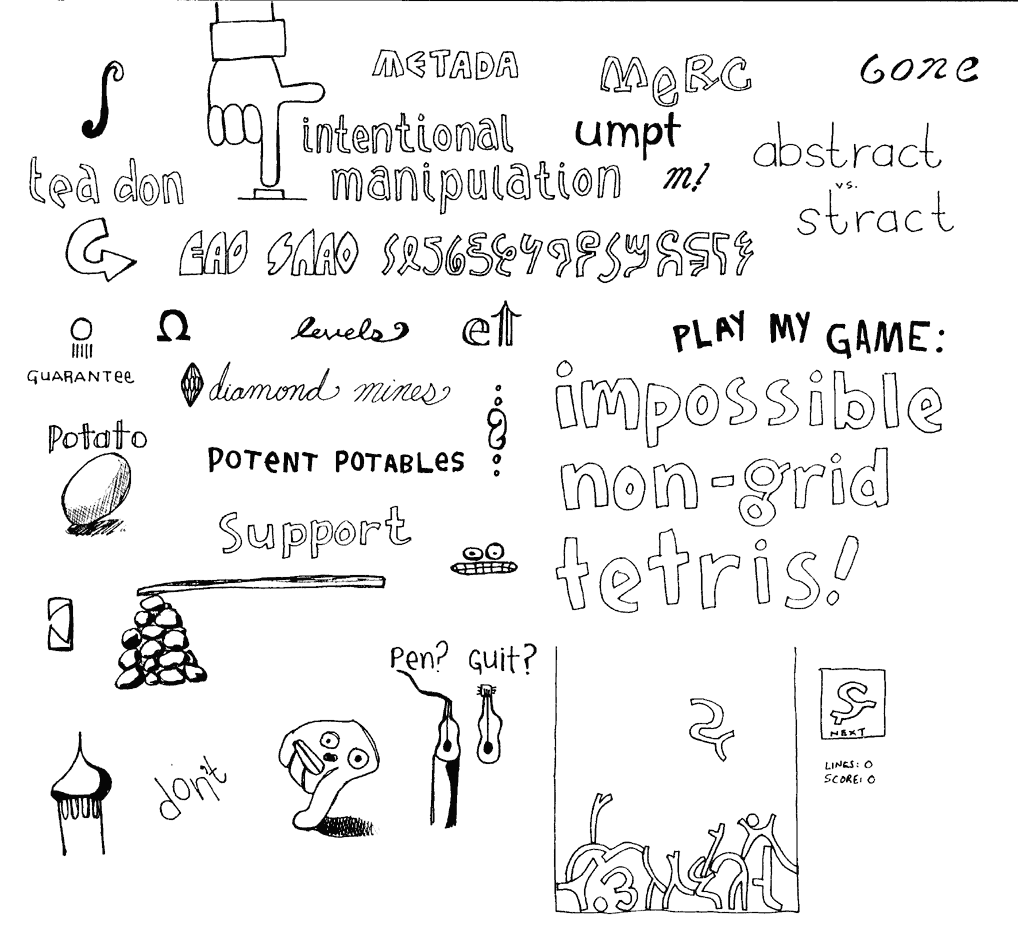 METADA
MeRC
Gone
intentional
manipulation
umpt
m!
abstract
vs.
stract
tea don
Ω
levels
GUARANTee
diamond mines
Potato
POTeNT POTABLeS
Support
PLAY MY GAME:
impossible
non-grid
tetris!
Pen? Guit?
don't
NEXT
LINES: 0
SCORE: 0